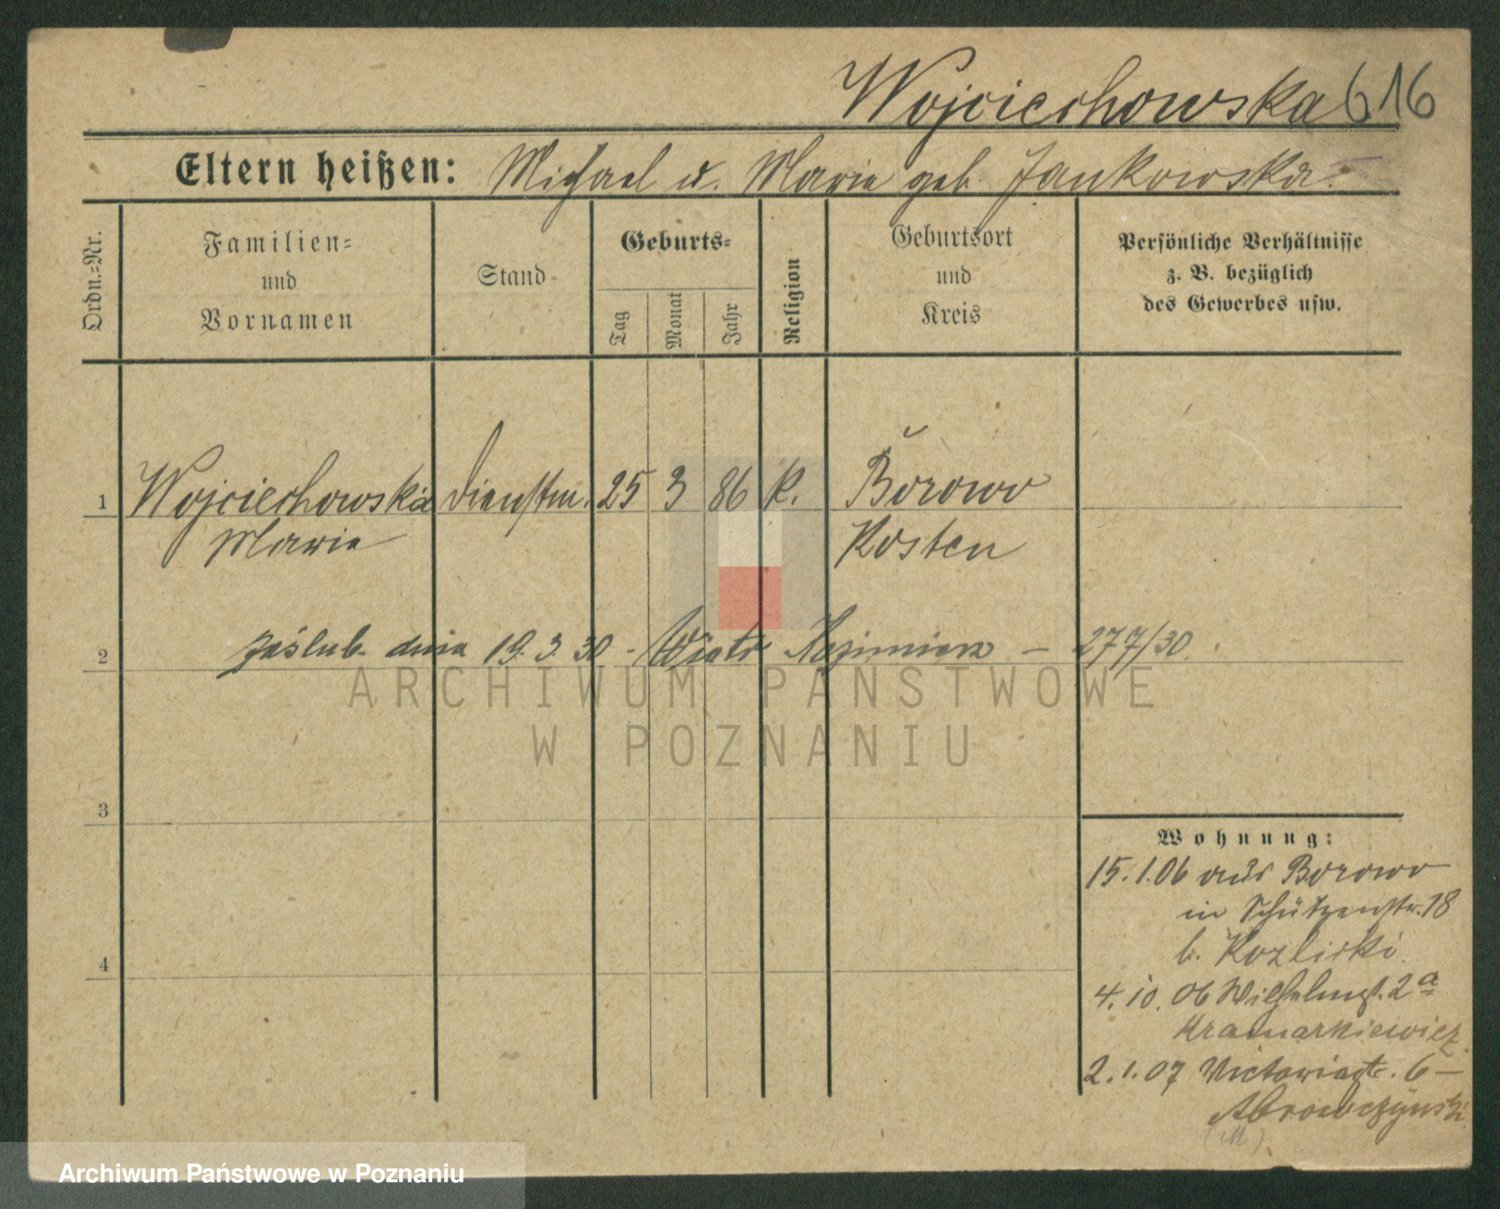 Wojciechowska 616
Eltern heißen: Michael u. Marie geb. Jankowska.
Ordn.-Nr.
Familien-
und
Vornamen
Stand
Geburts-
Tag
Monat
Jahr
Religion
Geburtsort
und
Kreis
Persönliche Verhältnisse
z. B. bezüglich
des Gewerbes usw.
1 Wojciechowska Dienstm. 25 3 86 K. Borowo
Marie Kosten
2 zaślub. dnia 19. 3 30 - Wiatr Kazimierz - 277/30.
ARCHIWUM PAŃSTWOWE
W POZNANIU
3
Wohnung:
15.1.06 aus Borowo
in Schützenstr. 18
b. Kozlicki.
4
4.10.06 Wilhelmst. 2a
Kramarkiewicz
2.1.07 Victoriastr. 6 -
(M)
Archiwum Państwowe w Poznaniu